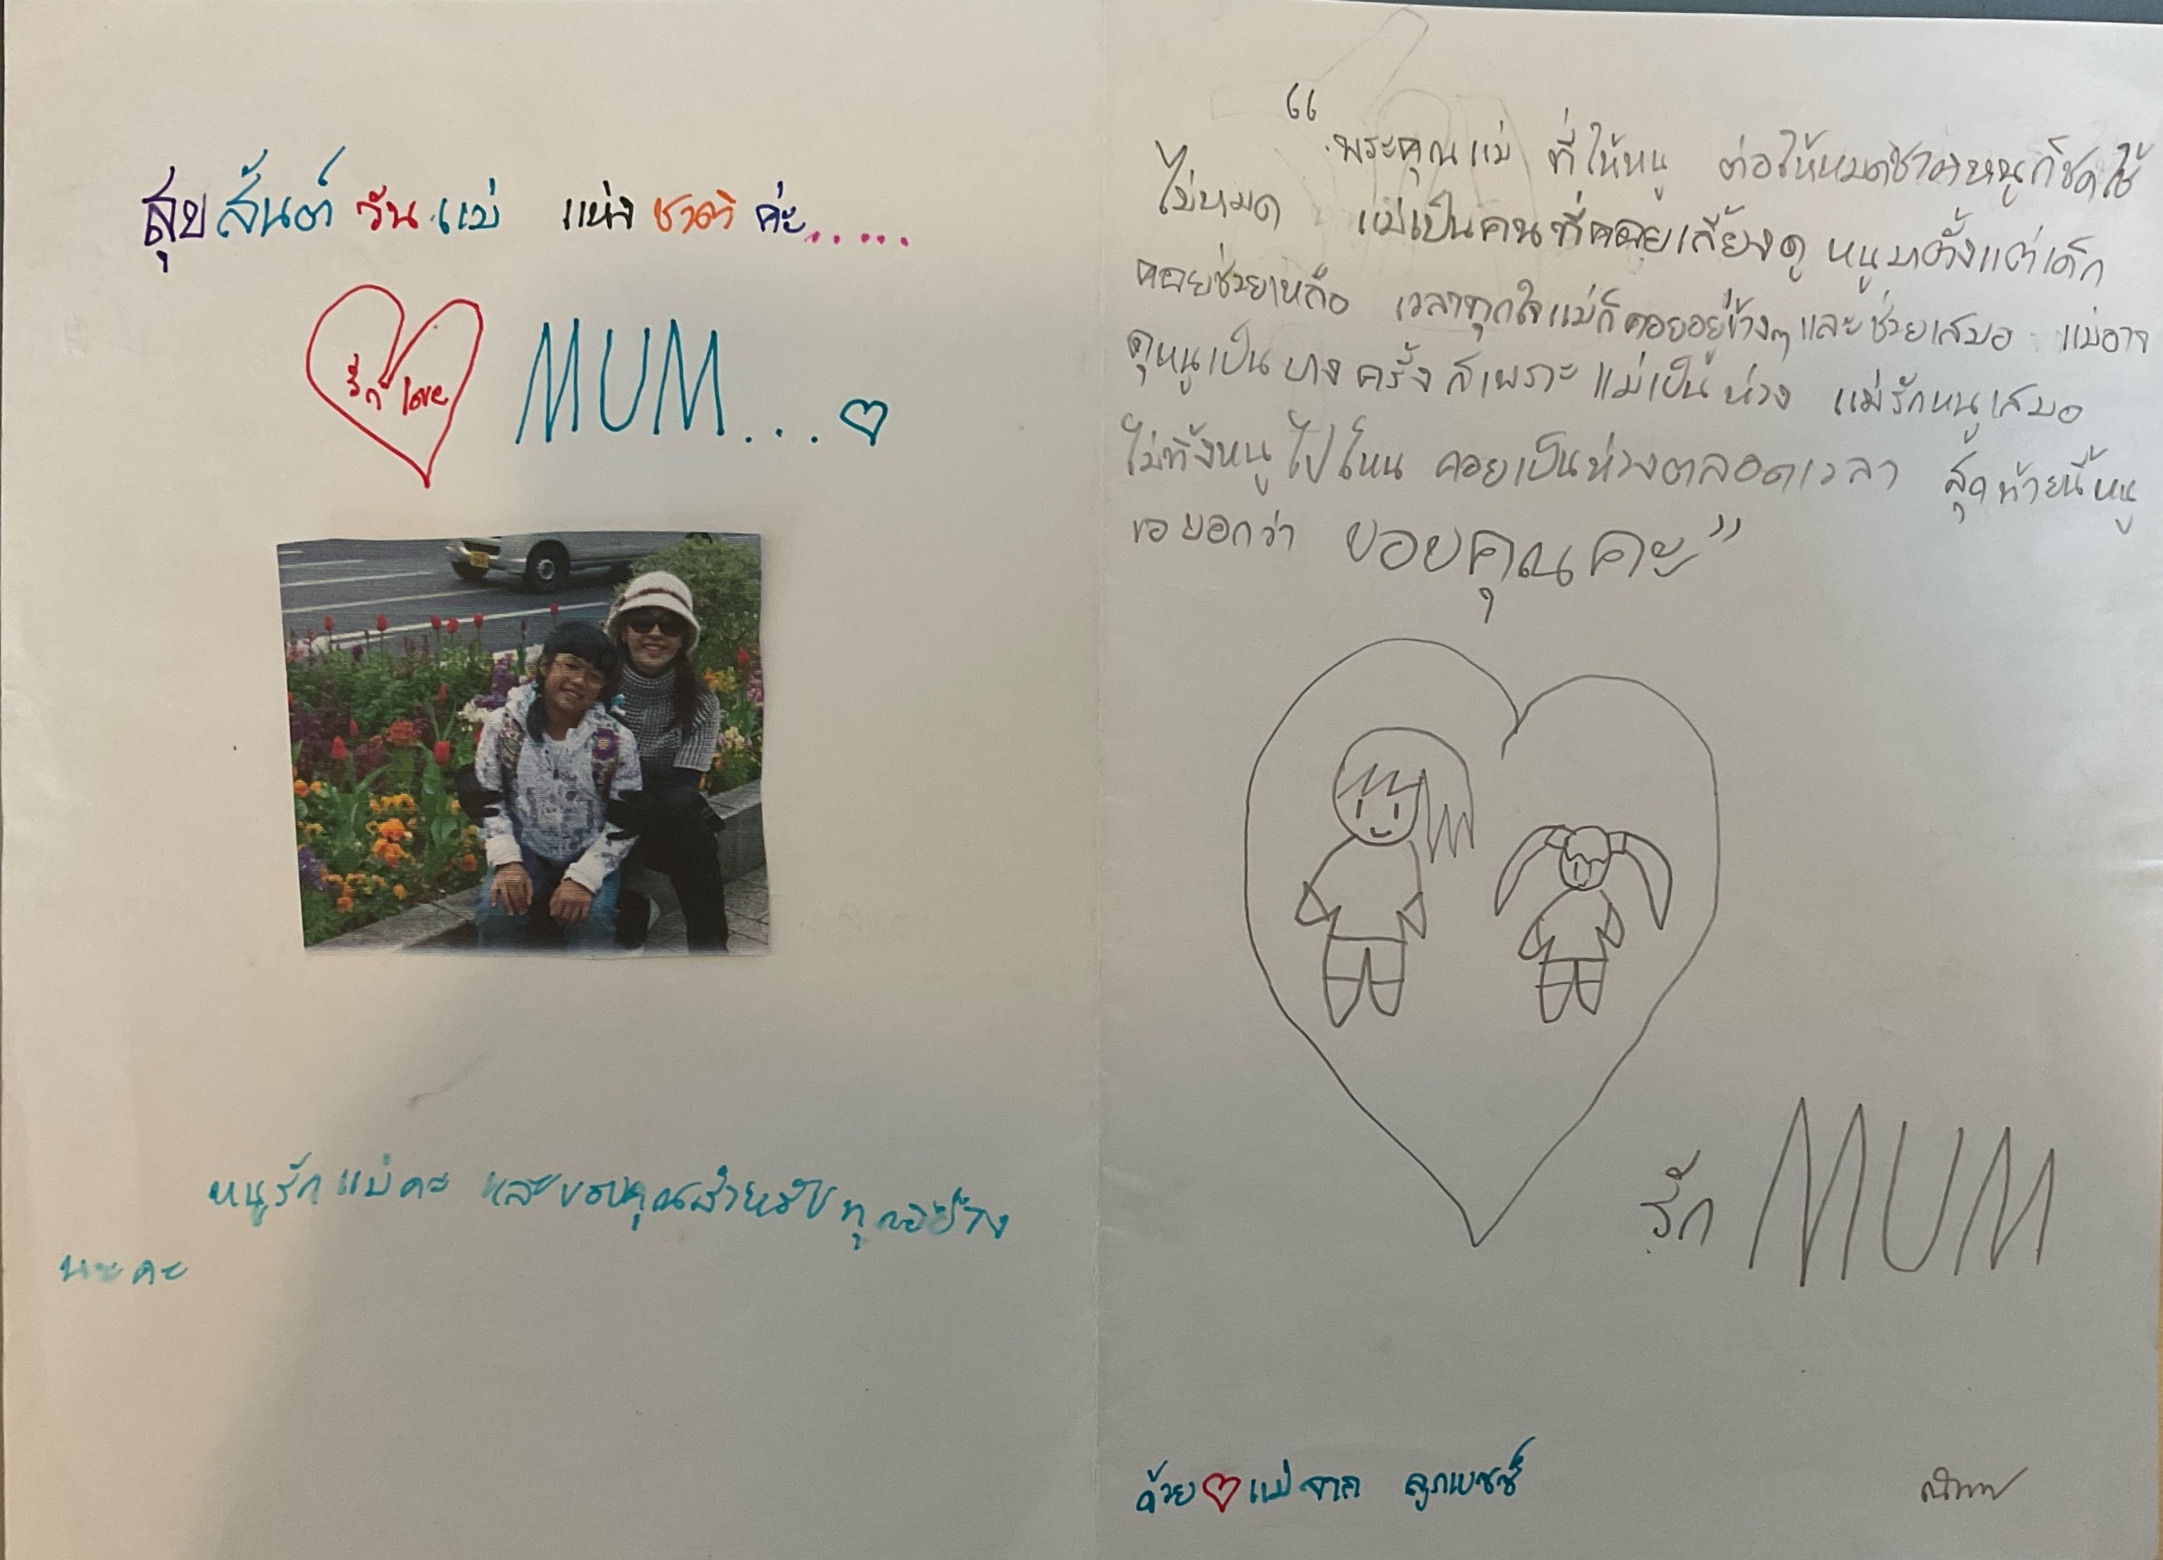 สุขสันต์ วันแม่ แห่งชาติ ค่ะ.....
รัก love MUM...
หนูรักแม่คะ และขอบคุณสำหรับทุกอย่าง
นะคะ
“พระคุณแม่ ที่ให้หนู ต่อให้หมดชาติหนูก็ชดใช้
ไม่หมด แม่เป็นคนที่คอยเลี้ยงดู หนูมาตั้งแต่เด็ก
คอยช่วยเหลือ เวลาทุกใจแม่ก็คอยอยู่ข้างๆและช่วยเสมอ แม่อาจ
ดุหนูเป็นบางครั้ง เพราะ แม่เป็นห่วง แม่รักหนูเสมอ
ไม่ทิ้งหนูไปไหน คอยเป็นห่วงตลอดเวลา สุดท้ายนี้หนู
ขอบอกว่า ขอบคุณคะ”
รัก MUM
ด้วย แม่จาก ลูกเบซซี่